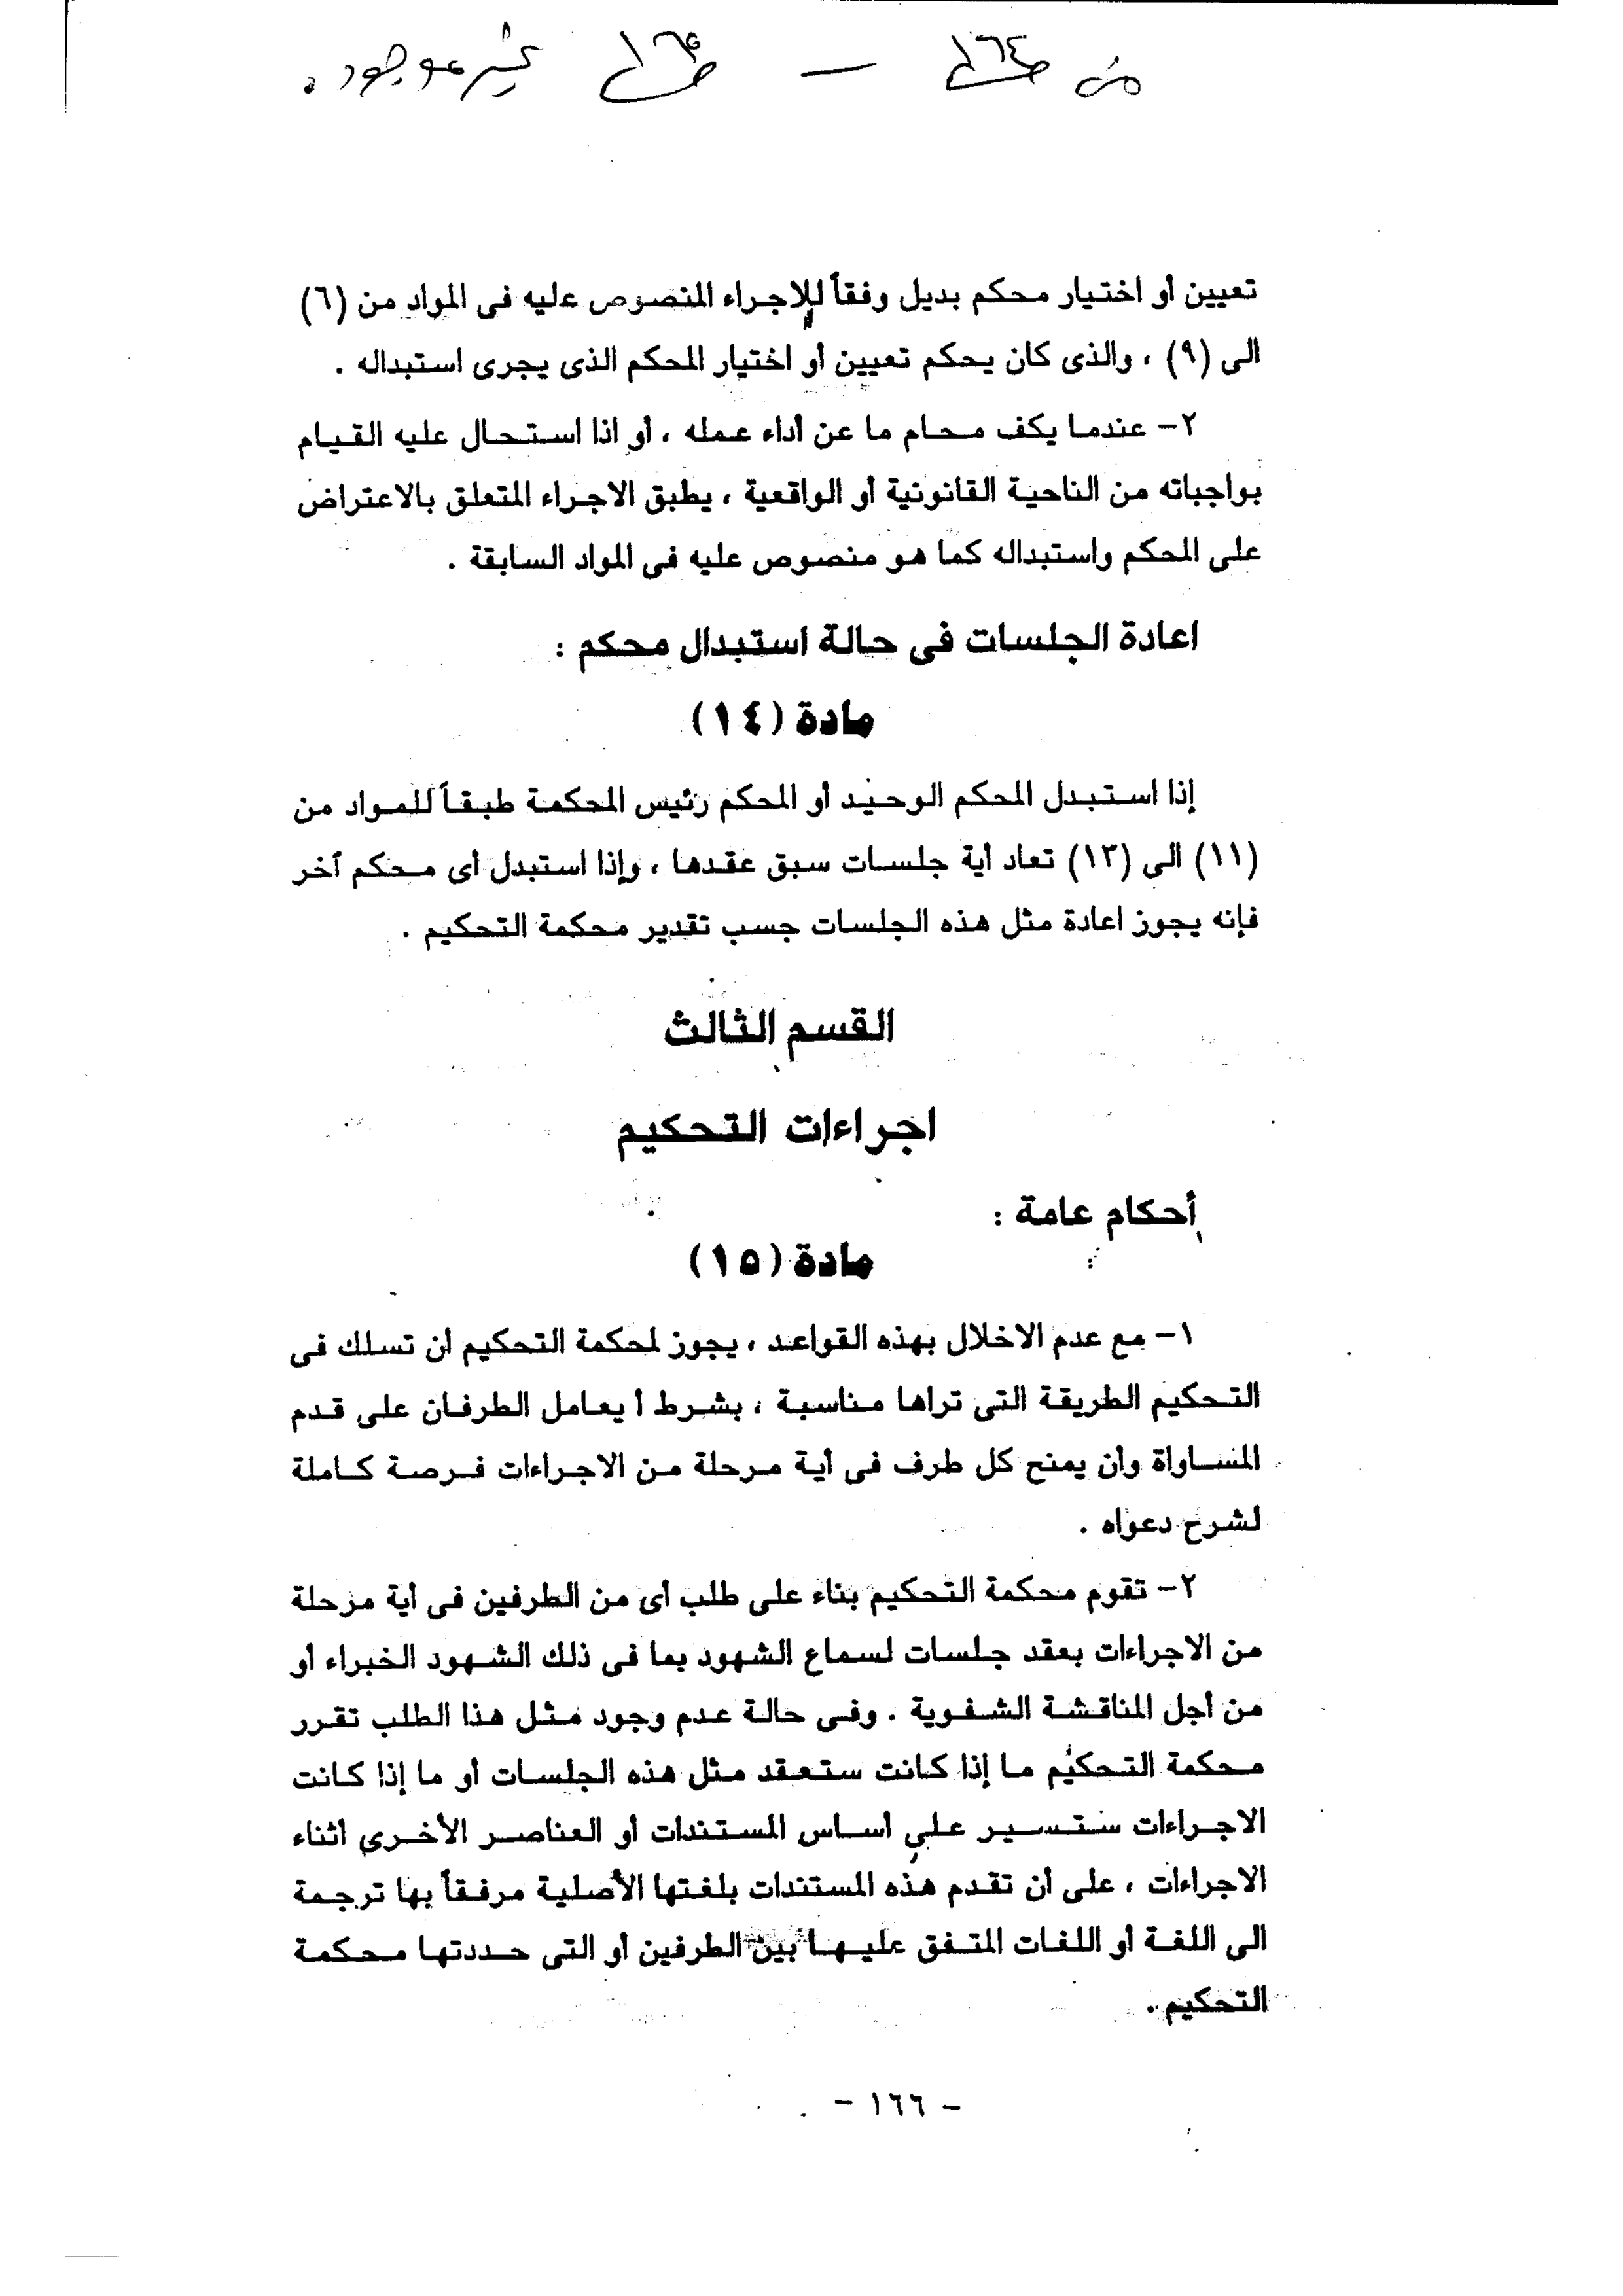 من ص١٦٤ — ص١٦٥ غير موجود.
تعيين أو اختيار محكم بديل وفقاً للإجراء المنصوص عليه فى المواد من (٦)
الى (٩) ، والذى كان يحكم تعيين أو اختيار المحكم الذى يجرى استبداله .
٢- عندما يكف محام ما عن أداء عمله ، أو اذا استحال عليه القيام
بواجباته من الناحية القانونية أو الواقعية ، يطبق الاجراء المتعلق بالاعتراض
على المحكم واستبداله كما هو منصوص عليه فى المواد السابقة .
اعادة الجلسات فى حالة استبدال محكم :
مادة (١٤)
إذا استبدل المحكم الوحيد أو المحكم رئيس المحكمة طبقاً للمواد من
(١١) الى (١٣) تعاد أية جلسات سبق عقدها ، وإذا استبدل أى محكم آخر
فإنه يجوز اعادة مثل هذه الجلسات جسب تقدير محكمة التحكيم .
القسم الثالث
اجراءات التحكيم
أحكام عامة :
مادة (١٥)
١- مع عدم الاخلال بهذه القواعد ، يجوز لمحكمة التحكيم أن تسلك فى
التحكيم الطريقة التى تراها مناسبة ، بشرط أ يعامل الطرفان على قدم
المساواة وأن يمنح كل طرف فى أية مرحلة من الاجراءات فرصة كاملة
لشرح دعواه .
٢- تقوم محكمة التحكيم بناء على طلب أى من الطرفين فى أية مرحلة
من الاجراءات بعقد جلسات لسماع الشهود بما فى ذلك الشهود الخبراء أو
من أجل المناقشة الشفوية . وفى حالة عدم وجود مثل هذا الطلب تقرر
محكمة التحكيم ما إذا كانت ستعقد مثل هذه الجلسات أو ما إذا كانت
الاجراءات ستسير على أساس المستندات أو العناصر الأخرى أثناء
الاجراءات ، على أن تقدم هذه المستندات بلغتها الأصلية مرفقاً بها ترجمة
الى اللغة أو اللغات المتفق عليها بين الطرفين أو التى حددتها محكمة
التحكيم .
- ١٦٦ -